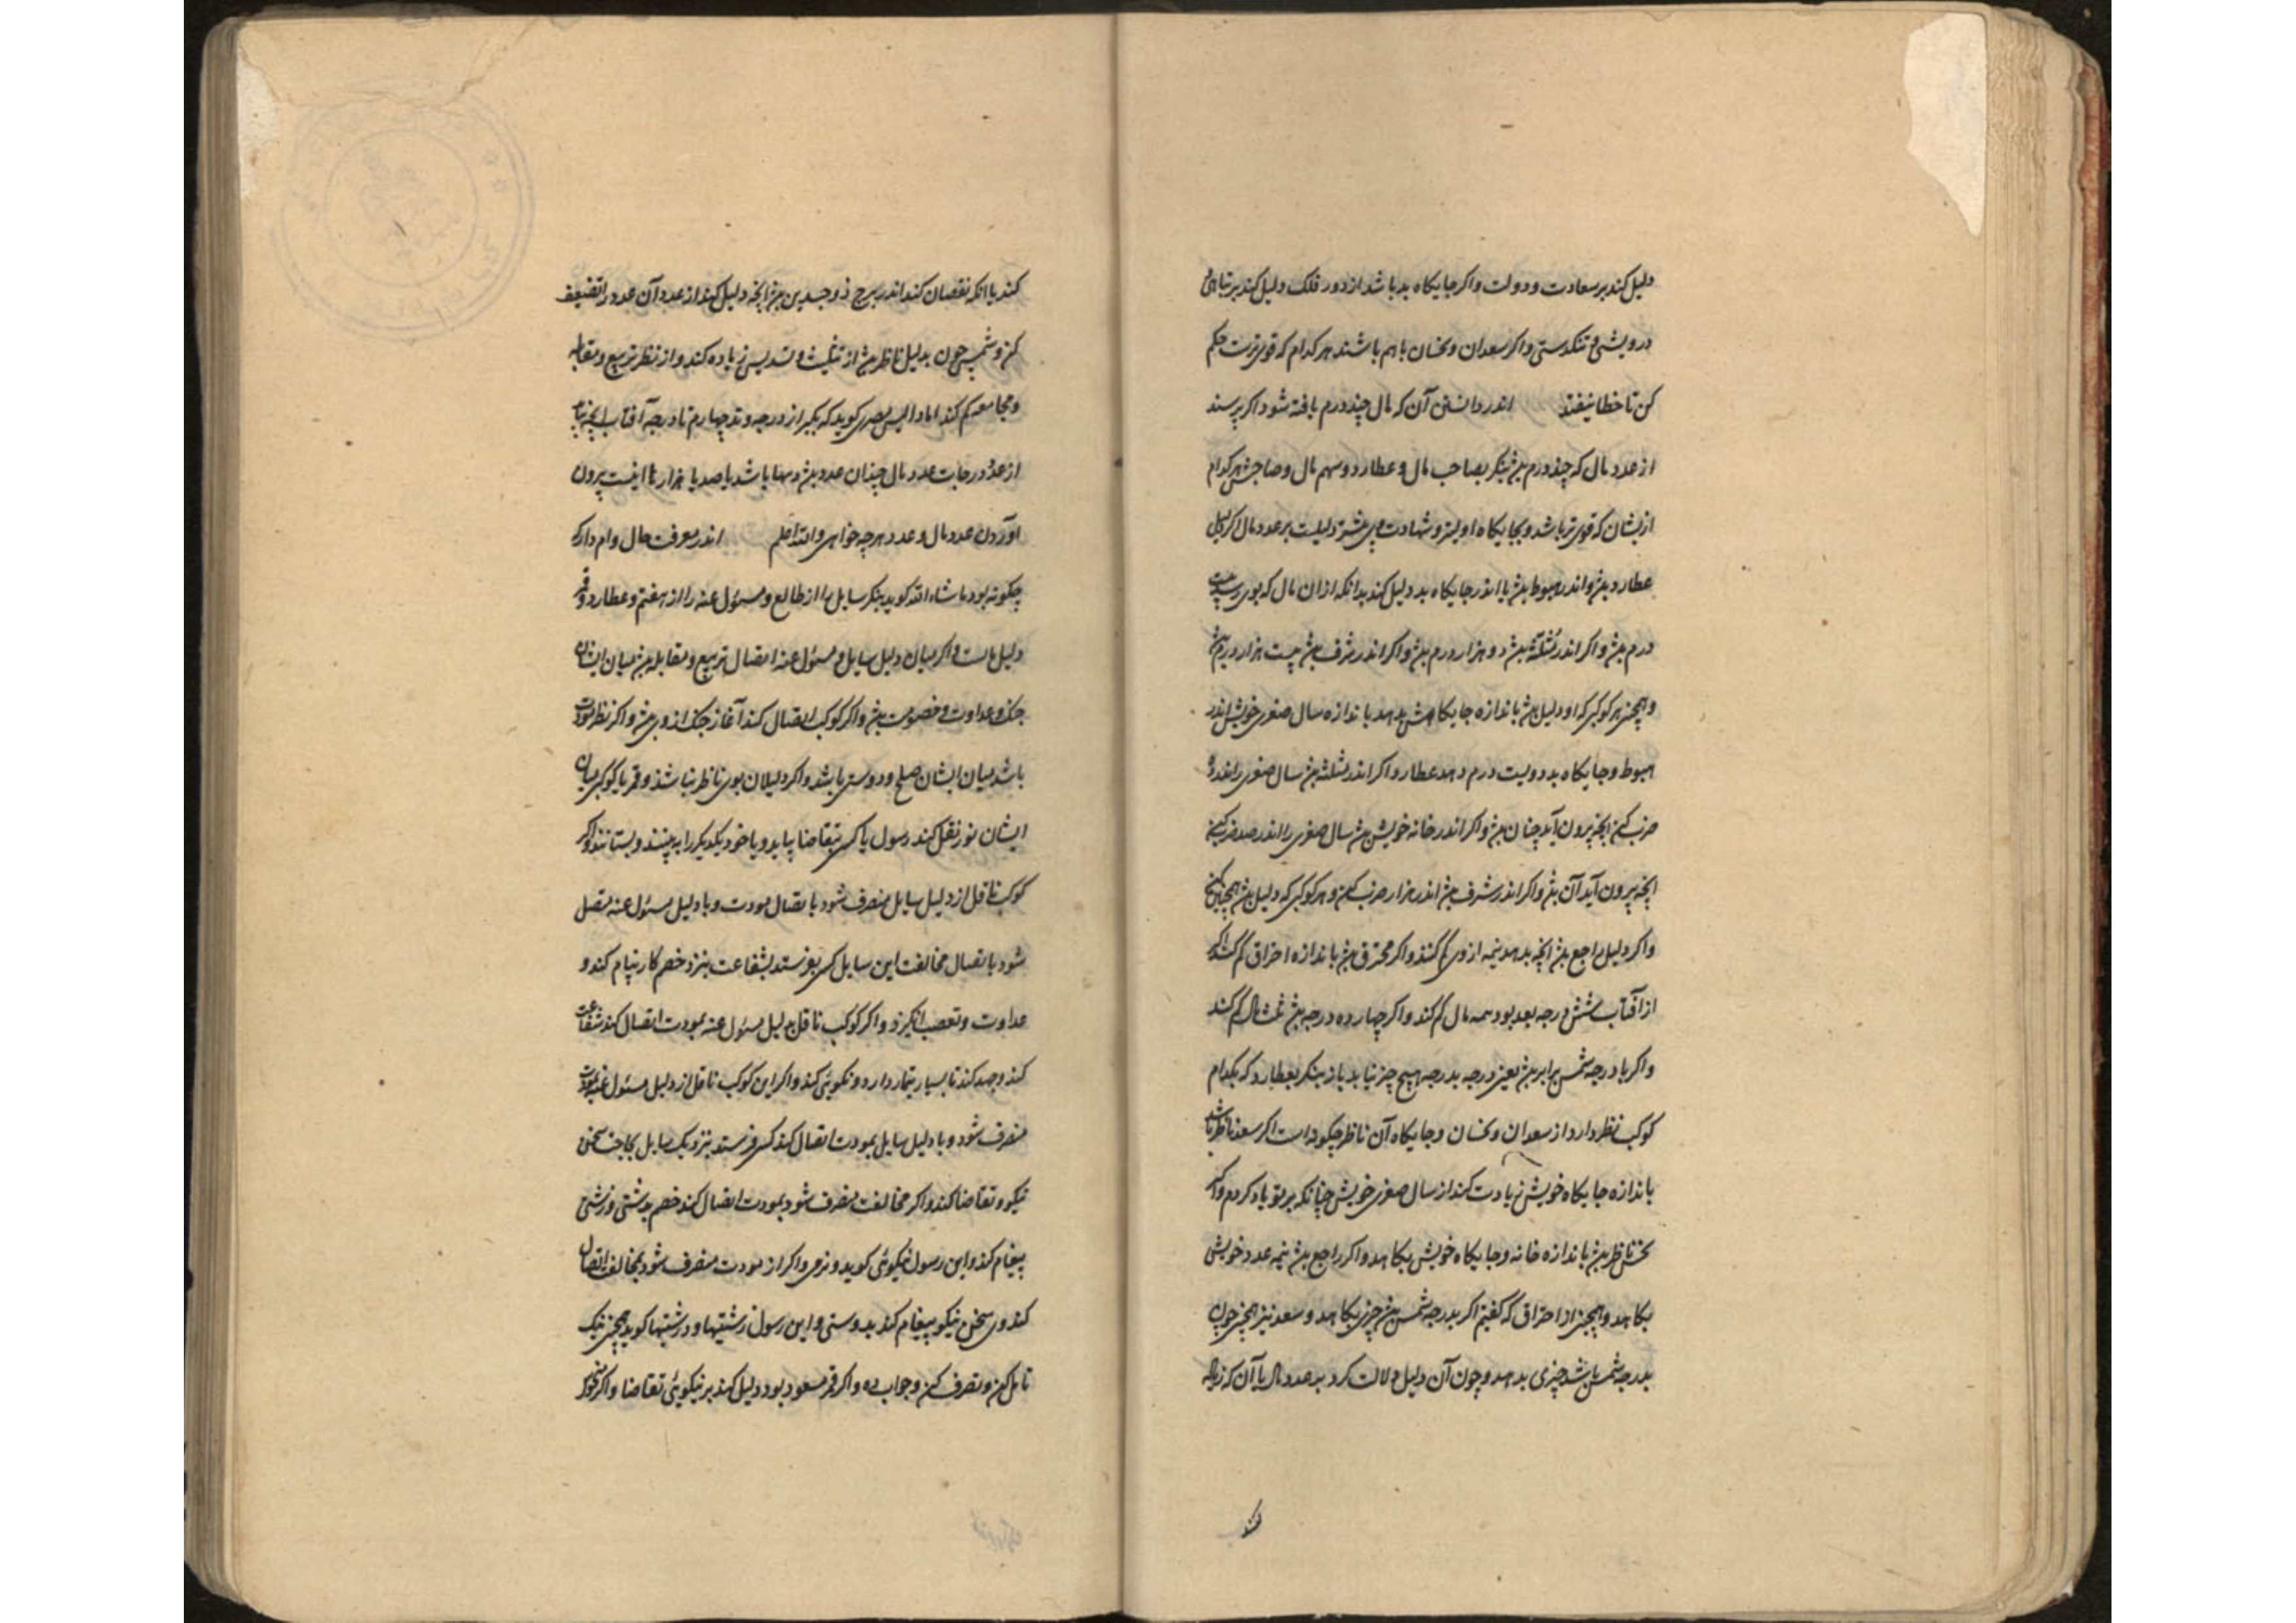 دلیل کند بر سعادت و دولت و اکر جایکاه بد باشد از دور فلک دلیل کند بر تباهی
درویشی و تنکدستی و اکر سعدان و نحسان باهم باشند هر کدام که قوی ترست حکم
کن تا خطا نیفتد اندر دانستن آن که مال چند درم یافته شود اکر پرسند
از عدد مال که چند درم بنکر بصاحب مال و عطارد و سهم مال و صاحبش هر کدام
ازیشان که قوی تر باشد و بجایکاه اولیتر و شهادت وی بیشتر دلیلست بر عدد مال اکر دلیل
عطارد و اندر هبوط یا اندر جایکاه بد دلیل کند بدانکه ازان مال که بوی رسد
درم و اکر اندر مثلثه دو هزار درم و اکر اندر شرف بیست هزار درم
و همچنین هر کوکبی که او دلیل باندازه جایکاهش بدهد باندازه سال صغری خویش اندر
هبوط و جایکاه بد دویست درم دهد عطارد و اکر اندر مثلثه سال صغری را اندر
ضرب کن انچه بیرون آید چنان و اکر اندر خانه خویش سال صغری را اندر صد ضرب کن
انچه بیرون آید آن و اکر اندر شرف اندر هزار ضرب کن و هر کوکبی که دلیل همچنین کن
و اکر دلیل راجع انچه بدهد نیمه از وی کم کند و اکر محترق باندازه احتراق کم کند اکر
از آفتاب شش درجه بعد بود همه مال کم کند و اکر چهارده درجه ثلث مال کم کند
و اکر با درجه شمس برابر یعنی درجه بدرجه هیچ چیز نیابد باز بنکر بعطارد که بکدام
کوکب نظر دارد از سعدان و نحسان و جایکاه آن ناظر چکونه است اکر سعد ناظر باشد
باندازه جایکاه خویش زیادت کند از سال صغری خویش چنانکه بر تو یاد کردم و اکر
نحس ناظر باندازه خانه و جایکاه خویش بکاهد و اکر راجع نیمه عدد خویش
بکاهد و همچنین از احتراق که کفتیم اکر بدرجه شمس چیزی بکاهد و سعد نیز همچنین چون
بدرجه شمس باشد چیزی بدهد و چون آن دلیل دلالت کرد بد عدد مال یا آن که زیاده
کند
کند یا انکه نقصان کند اندر برج ذو جسدین انچه دلیل کند از عدد آن عدد را تضعیف
کن و شمس چون بدلیل ناظر از تثلیث و تسدیس زیاده کند و از نظر تربیع و مقابله
و مجامعه کم کند اما والیس مصری کوید که بکیر از درجه وتد چهارم تا درجه آفتاب انچه بیاید
از عدد درجات عدد مال چندان عدد و مها باشد یا صد یا هزار تا اینست بیرون
آوردن عدد مال و عدد هر چه خواهی والله اعلم اندر معرفت حال وام دار که
چکونه بود ماشاء الله کوید بنکر سایل را از طالع و مسئول عنه را از هفتم و عطارد و قمر
دلیل مالست و اکر میان دلیل سایل و مسئول عنه اتصال تربیع و مقابله میان ایشان
جنک و عداوت و خصومت و اکر کوکب اتصال کند آغاز جنک از وی و اکر نظر مودت
باشد میان ایشان صلح و دوستی باشد و اکر دلیلان بوی ناظر نباشند و قمر یا کوکبی میان
ایشان نور نقل کند رسول یا کسی بتقاضا بیاید و یا خود یکدیکر را ببینند و بستانند و اکر
کوکب ناقل از دلیل سایل منصرف شود باتصال مودت و با دلیل مسئول عنه متصل
شود باتصال مخالفت این سایل کسی بفرستد بشفاعت بنزد خصم کار بنام کند و
عداوت و تعصب انکیزد و اکر کوکب ناقل بدلیل مسئول عنه بمودت اتصال کند شفاعت
کند و جهد کند تا بسیار تیمار دارد و نکوئی کند و اکر این کوکب ناقل از دلیل مسئول عنه بمودت
منصرف شود و با دلیل سایل بمودت اتصال کند کسی فرستد بنزدیک سایل سخن
نیکو و تقاضا کند و اکر مخالفت منصرف شود بمودت اتصال کند خصم بدرشتی و زشتی
پیغام کند و این رسول نیکوئی کوید و نرمی و اکر از مودت منصرف شود بمخالفت اتصال
کند وی سخن نیکو پیغام کند بدوستی و این رسول زشتیها و درشتیها کوید همچنین نیک
تامل کن و تصرف کن و جواب ده و اکر قمر مسعود بود دلیل کند بر نیکوئی تقاضا و اکر